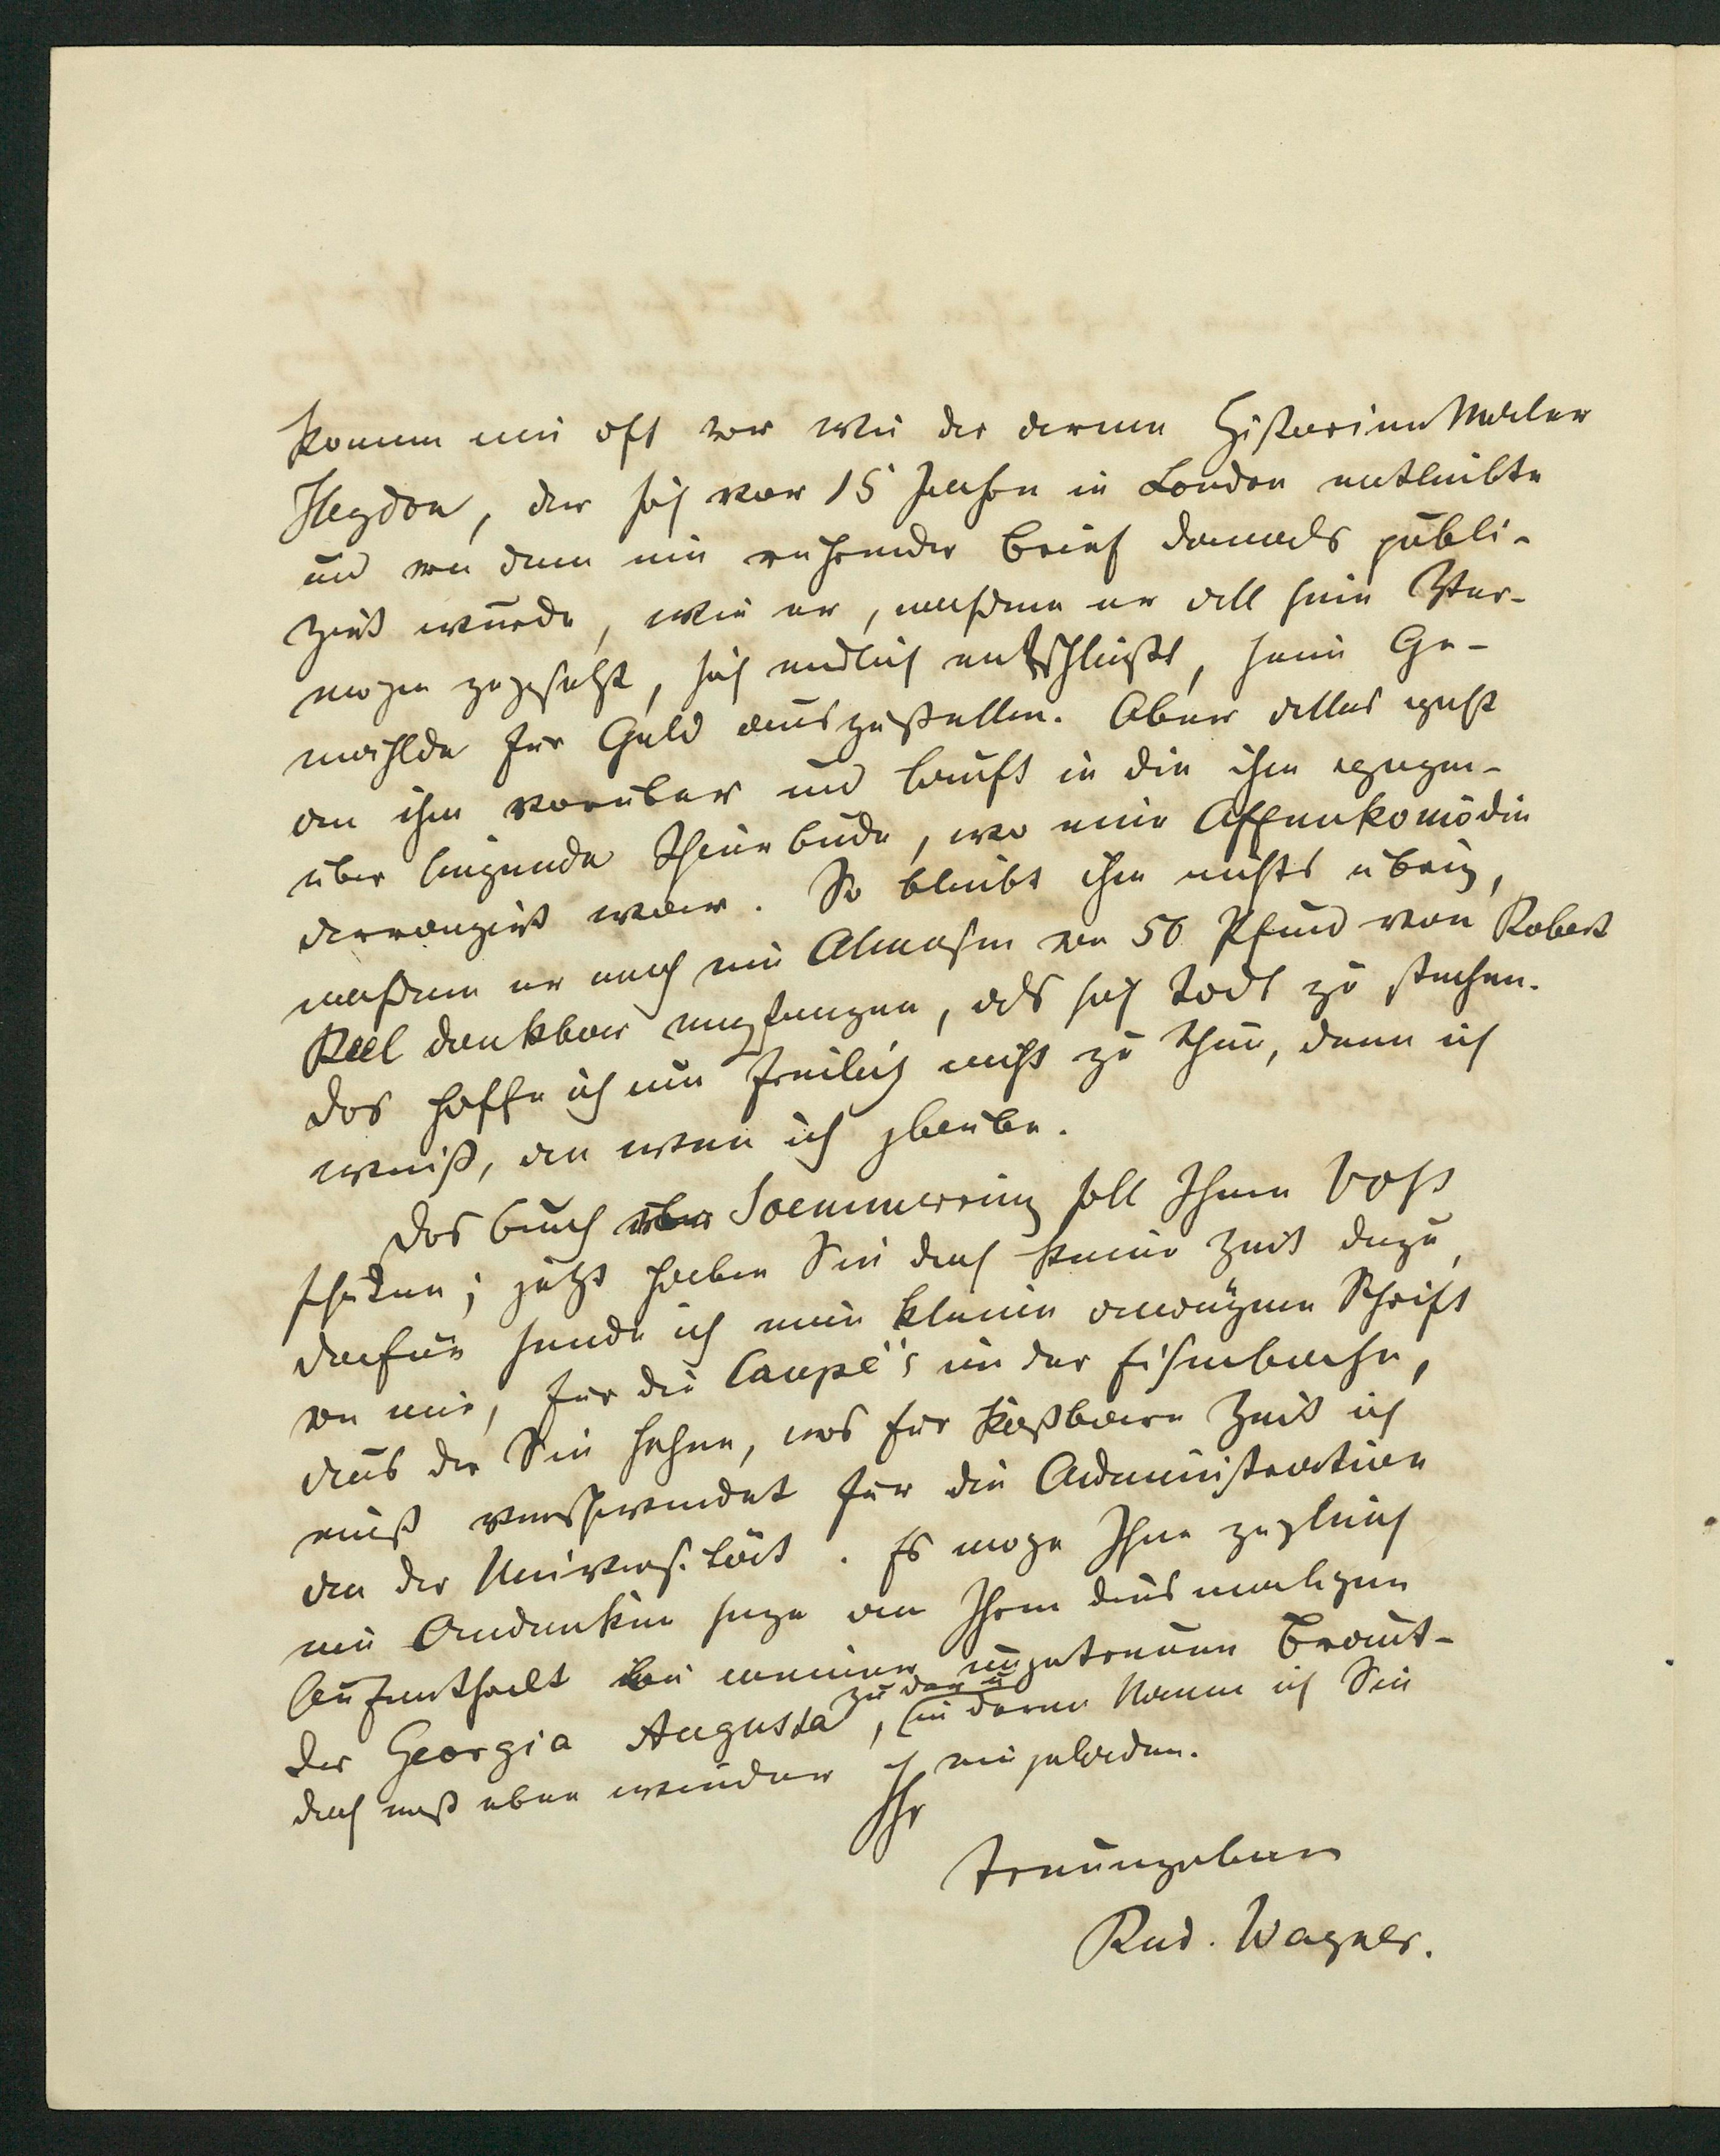 komme mir oft vor wie der arme Historienmaler
Heydon, der sich vor 15 Jahren in London entleibte
und von dem ein rührender Brief damals publi-
zirt wurde, wie er, nachdem er all sein Ver-
mögen zugesetzt, sich endlich entschließt, seine Ge-
mählde für Geld auszustellen. Aber alles geht
an ihm vorüber und läuft in die ihm gegen-
über liegende Schaubude, wo eine Affenkomödie
arrangirt war. So bleibt ihm nichts übrig,
nachdem er noch ein Almosen von 50 Pfund von Robert
Peel dankbar empfangen, als sich todt zu stechen.
Das hoffe ich nun freilich nicht zu thun, denn ich
weiß, an wen ich glaube.
Das Buch über Soemmerring soll Ihnen Voss
schicken; jetzt haben Sie doch keine Zeit dazu,
dafür sende ich eine kleine anonyme Schrift
von mir, für die Coupé's in der Eisenbahn,
aus der Sie sehen, was für kostbare Zeit ich
muß verschwendet für die Administration
an der Universität. Es möge Ihnen zugleich
ein Andenken seyn an Ihren diesmaligen
Aufenthalt bei meiner ungetreuen Braut-
der Georgia Augusta, zu der u in deren Namen ich Sie
doch erst eben wieder eingeladen.
Ihr
treuergebener
Rud. Wagner.